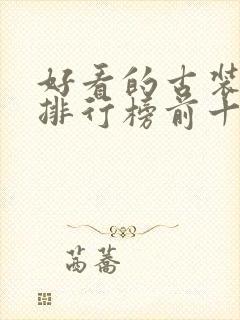 好看的古装
排行榜前十
茼蒿